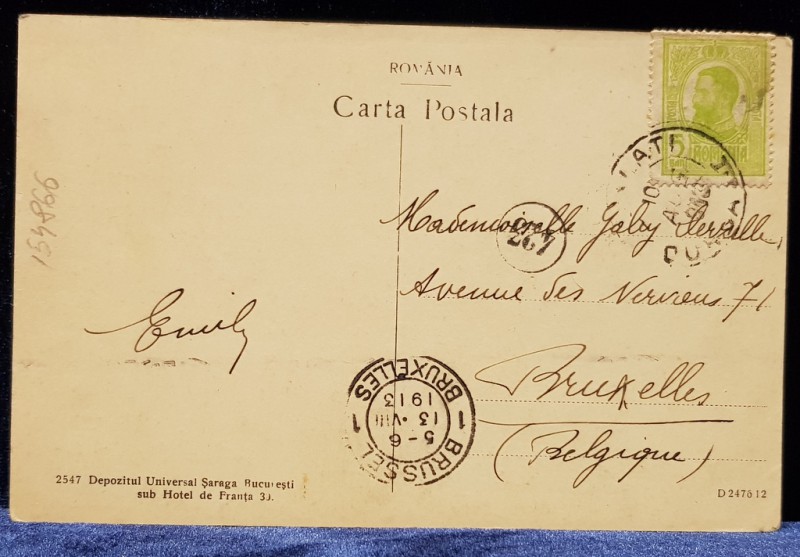 ROMÂNIA
Carta Postala
5
BANI
ROMANIA
GALATI
10
267
Mademoiselle Gaby
Avenue des 71
Bruxelles
(Belgique)
Emily
154866
1 BRUXELLES
1913
13 · VIII
5-6
BRUSSEL 1
2547 Depozitul Universal Şaraga Bucureşti
sub Hotel de Franţa 30.
D 2476 12